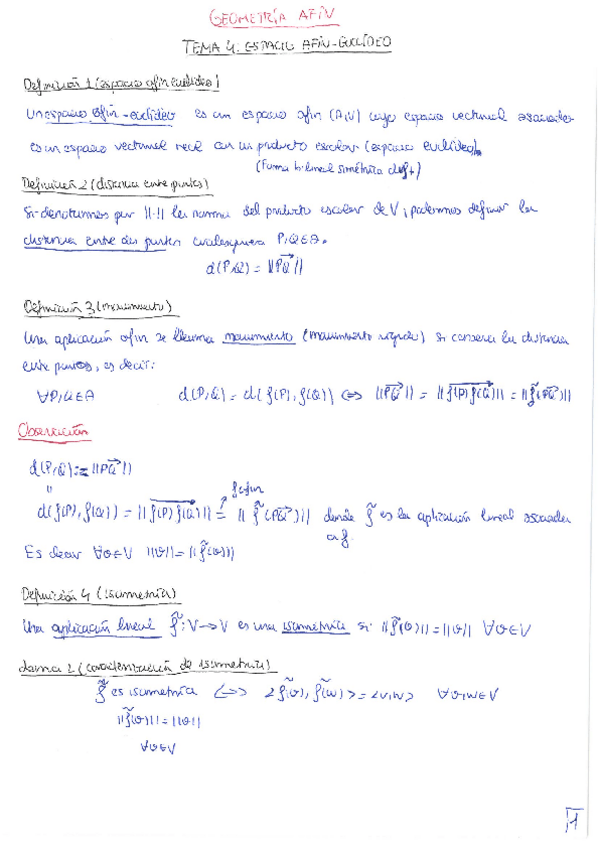 GEOMETRÍA AFÍN
TEMA 4: ESPACIO AFÍN-EUCLÍDEO
Definición 1 (espacio afín euclídeo)
Un espacio afín-euclídeo es un espacio afín (A,V) cuyo espacio vectorial asociado
es un espacio vectorial real con un producto escalar (espacio euclídeo).
(Forma bilineal simétrica def +)
Definición 2 (distancia entre puntos)
Si denotamos por ||·|| la norma del producto escalar de V, podemos definir la
distancia entre dos puntos cualesquiera P,Q∈A.
d(P,Q) = ||PQ⃗||
Definición 3 (movimiento)
Una aplicación afín se llama movimiento (movimiento rígido) si conserva la distancia
entre puntos, es decir:
∀P,Q∈A d(P,Q) = d(f(P),f(Q)) ⇔ ||PQ⃗|| = ||f(P)f(Q)⃗|| = ||f̃(PQ⃗)||
Observación
d(P,Q) = ||PQ⃗||
|| f afín
d(f(P),f(Q)) = ||f(P)f(Q)⃗|| = ||f̃(PQ⃗)|| donde f̃ es la aplicación lineal asociada
a f.
Es decir ∀v∈V ||v|| = ||f̃(v)||
Definición 4 (isometría)
Una aplicación lineal f̃: V→V es una isometría si ||f̃(v)|| = ||v|| ∀v∈V
Lema 1 (caracterización de isometría)
f̃ es isometría ⇔ <f̃(v), f̃(w)> = <v,w> ∀v,w∈V
||f̃(v)|| = ||v||
∀v∈V
1